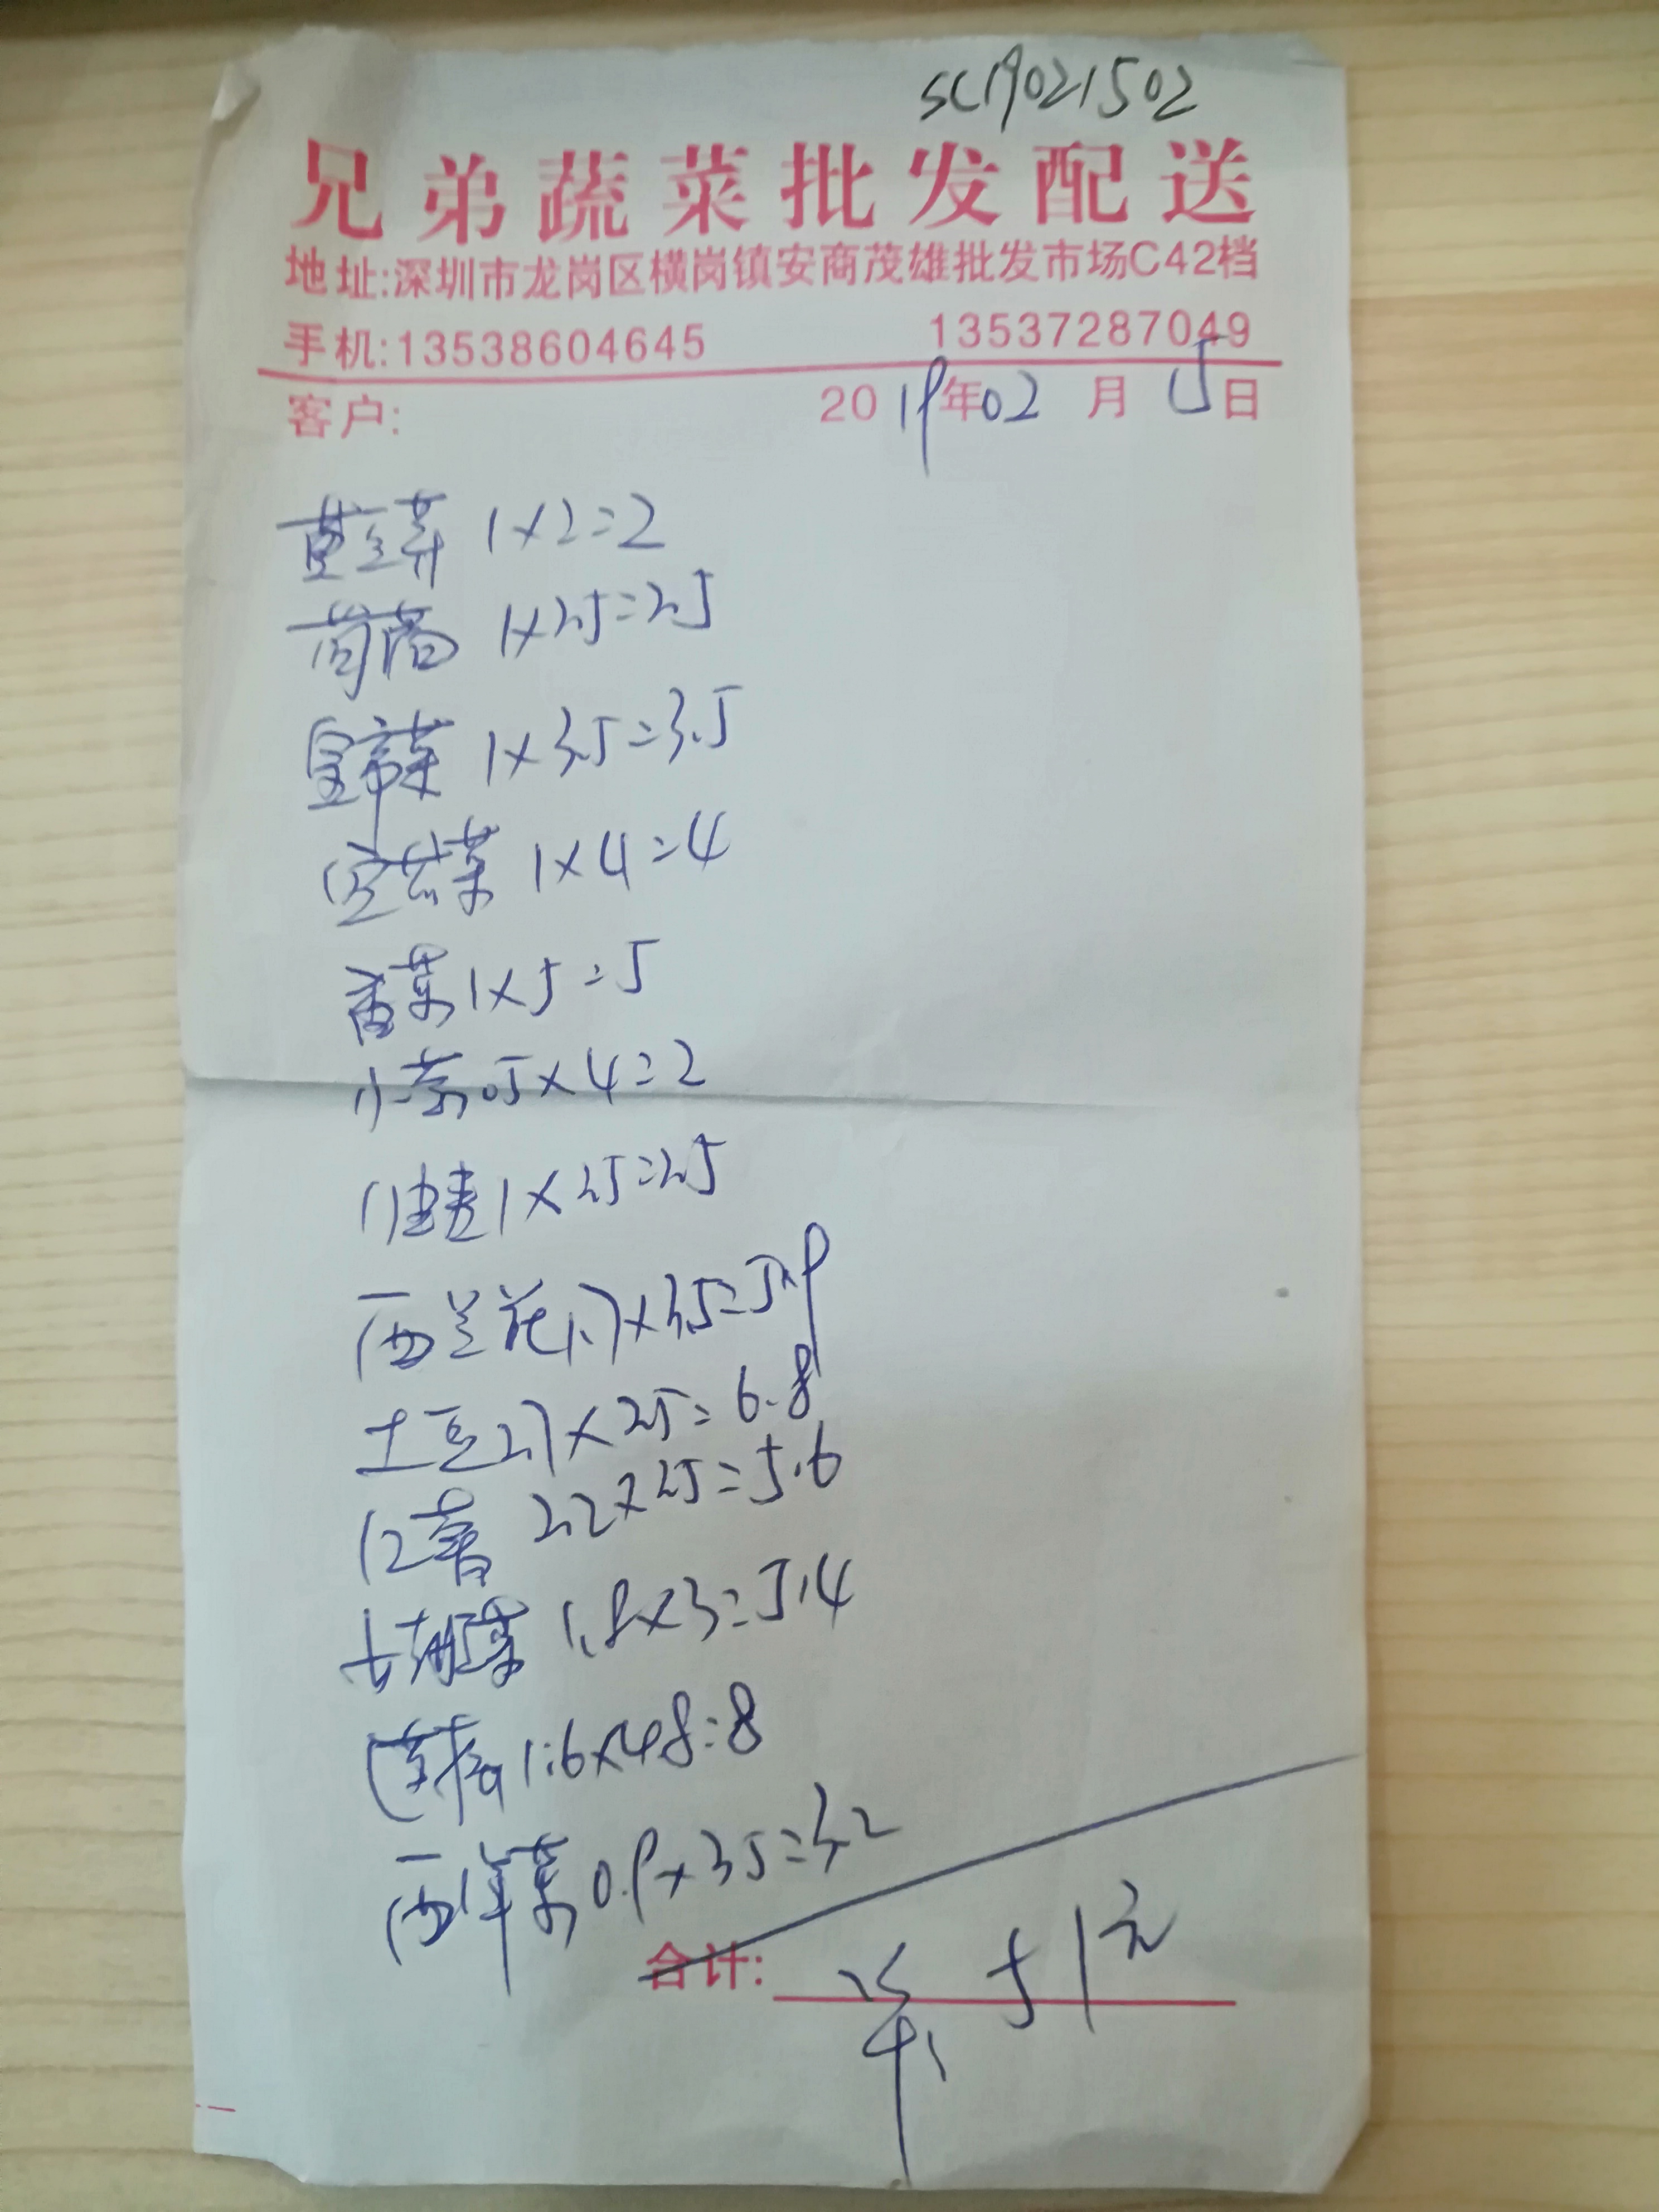 SC19021502
兄弟蔬菜批发配送
地址:深圳市龙岗区横岗镇安商茂雄批发市场C42档
手机:13538604645 13537287049
客户: 2019年02月15日
1×2=2
茼蒿 1×2.5=2.5
皇帝菜 1×3.5=3.5
1×4=4
香菜 1×5=5
0.5×4=2
1×2.5=2.5
西兰花 1.7×3.5=5.9
土豆 2.7×2.5=6.8
红薯 2.2×2.5=5.6
1.8×3=5.4
1.6×4.8=8
西洋菜 0.9×3.5=3.2
合计: 51元